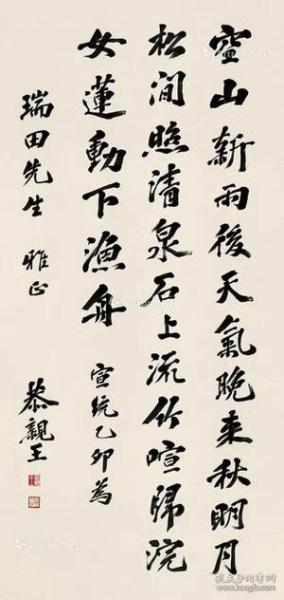 空山新雨後天氣晚来秋明月
松澗照清泉石上流竹喧歸浣
女蓮動下漁舟 宣統乙卯為
瑞田先生 雅正
恭親王